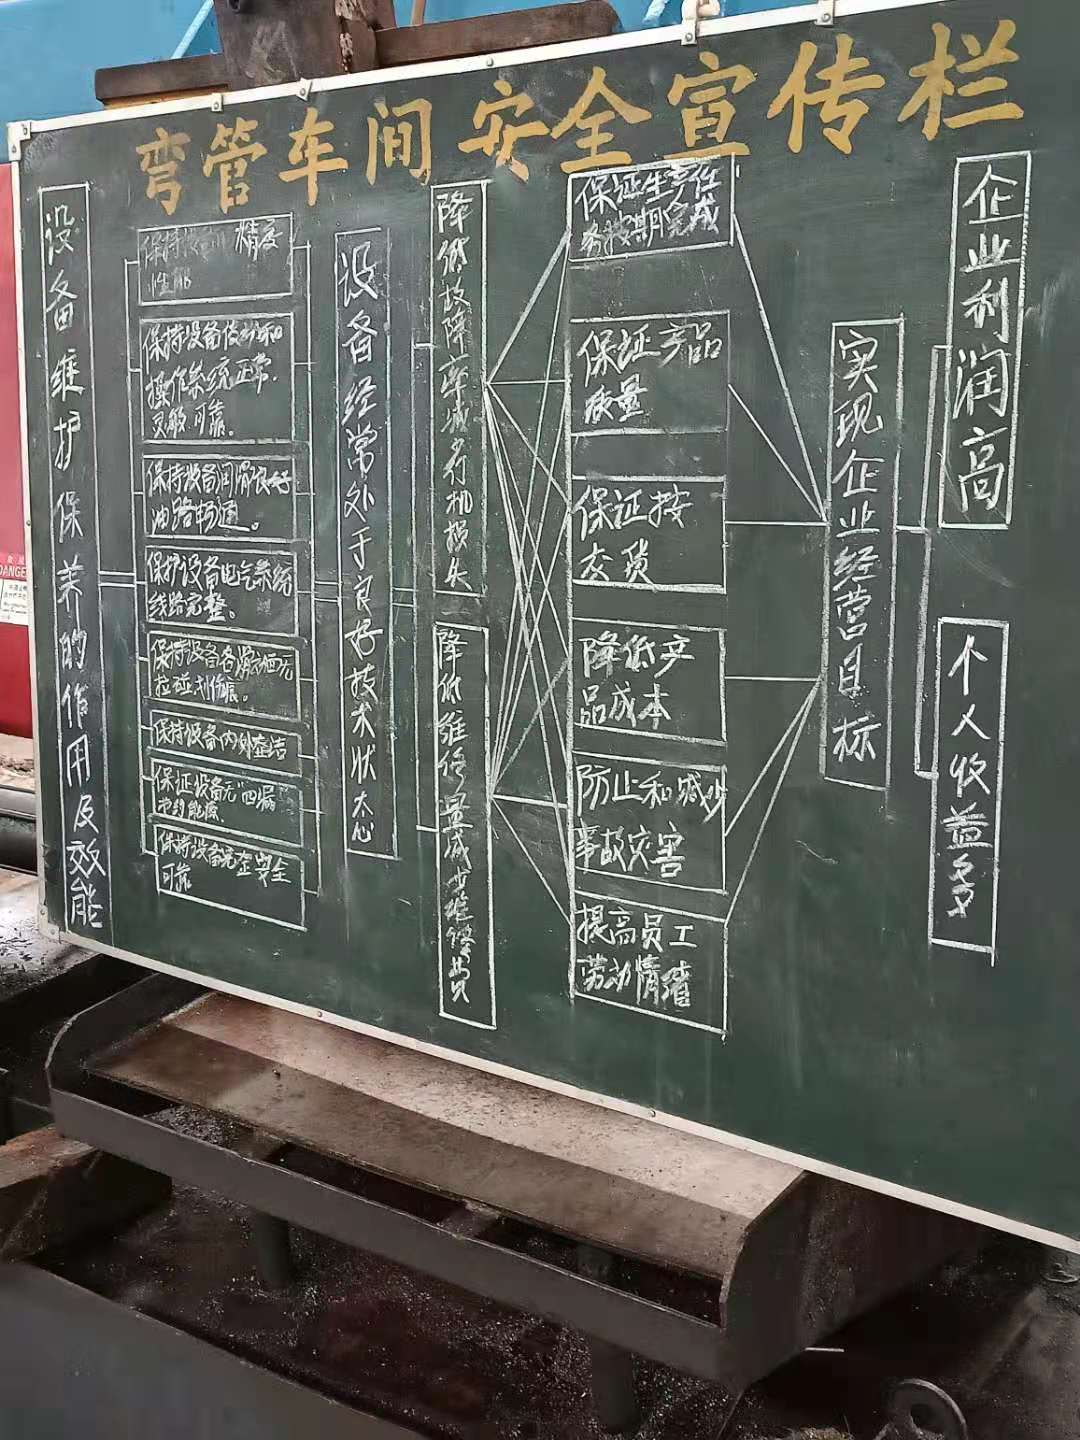 弯管车间安全宣传栏
设备维护保养的作用及效能
保持 精度
性
保持设备传动和
操作系统正常.
灵敏可靠。
保持设备润滑良好
油路畅通。
保护设备电气系统
线路完整。
保持设备各滑动面无
拉碰划伤痕。
保持设备内外整洁
保证设备无"四漏"
节约能源
保持设备完 安全
可靠
设备经常处于良好技术状态
降低故障率减少停机损失
降低维修量减少维修费
保证生产任
务按期完成
保证产品
质量
保证按
交货
降低产
品成本
防止和减少
事故灾害
提高员工
劳动情绪
实现企业经营目标
企业利润高
个人收益多
DANGER